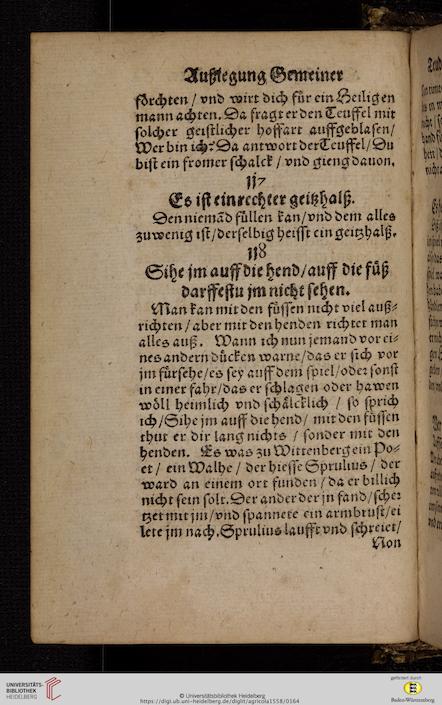 Außlegung Gemeiner
förchten / vnd wirt dich für ein Heiligen
mann achten. Da fragt er den Teuffel mit
solcher geistlicher hoffart auffgeblasen /
Wer bin ich? Da antwort der Teuffel / Du
bist ein fromer schalck / vnd gieng dauon.
117
Es ist ein rechter geitzhalß.
Den niemãd füllen kan / vnd dem alles
zuwenig ist / derselbig heisst ein geitzhalß.
118
Sihe jm auff die hend / auff die füß
darffestu jm nicht sehen.
Man kan mit den füssen nicht viel auß-
richten / aber mit den henden richtet man
alles auß. Wann ich nun jemand vor ei-
nes andern dücken warne / das er sich vor
jm fürsehe / es sey auff dem spiel / oder sonst
in einer fahr / das er schlagen oder hawen
wöll heimlich vnd schälcklich / so sprich
ich / Sihe jm auff die hend / mit den füssen
thut er dir lang nichts / sonder mit den
henden. Es was zu Wittenberg ein Po-
et / ein Walhe / der hiesse Sprulius / der
ward an einem ort funden / da er billich
nicht sein solt. Der ander der jn fand / scher
tzet mit jm / vnd spannete ein armbrust / ei
lete jm nach. Sprulius laufft vnd schreiet /
Non
UNIVERSITÄTS-
BIBLIOTHEK
HEIDELBERG
© Universitätsbibliothek Heidelberg
https://digi.ub.uni-heidelberg.de/diglit/agricola1558/0164
gefördert durch
Baden-Württemberg